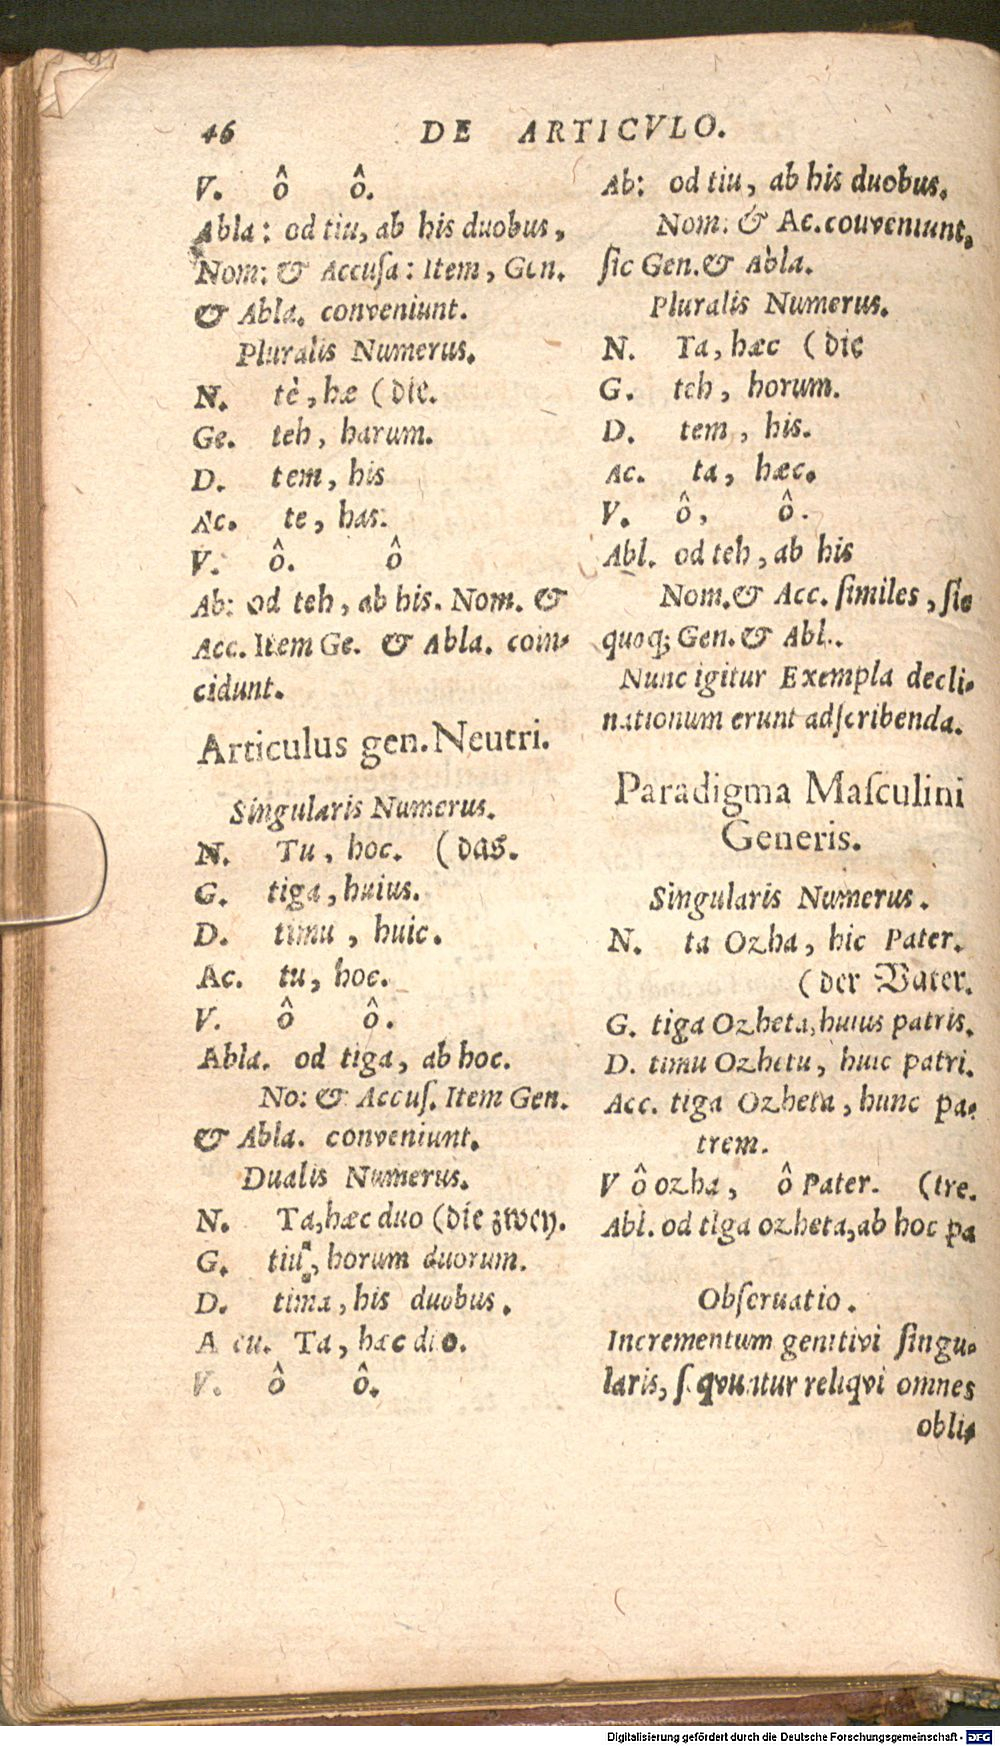 46 DE ARTICVLO.
V. ô ô.
Abla: od tiu, ab his duobus,
Nom: & Accuſa: Item, Gen.
& Abla. conveniunt.
Pluralis Numerus.
N. tè, hæ (die.
Ge. teh, harum.
D. tem, his
Ac. te, has.
V. ô. ô
Ab: od teh, ab his. Nom. &
Acc. Item Ge. & Abla. coin-
cidunt.
Articulus gen. Neutri.
Singularis Numerus.
N. Tu, hoc. (das.
G. tiga, huius.
D. timu, huic.
Ac. tu, hoc.
V. ô ô.
Abla. od tiga, ab hoc.
No: & Accuſ. Item Gen.
& Abla. conveniunt.
Dualis Numerus.
N. Ta, hæc duo (die zwey.
G. tiu, horum duorum.
D. tima, his duobus.
Accu. Ta, hæc duo.
V. ô ô.
Ab: od tiu, ab his duobus.
Nom: & Ac. couveniunt,
ſic Gen. & Abla.
Pluralis Numerus.
N. Ta, hæc (die
G. teh, horum.
D. tem, his.
Ac. ta, hæc.
V. ô, ô.
Abl. od teh, ab his
Nom. & Acc. ſimiles, ſic
quoq; Gen. & Abl.
Nunc igitur Exempla decli-
nationum erunt adſcribenda.
Paradigma Maſculini
Generis.
Singularis Numerus.
N. ta Ozha, hic Pater.
(der Vater.
G. tiga Ozheta, huius patris.
D. timu Ozhetu, huic patri.
Acc. tiga Ozheta, hunc pa-
trem.
V ô ozha, ô Pater. (tre.
Abl. od tiga ozheta, ab hoc pa
Obſeruatio.
Incrementum genitivi ſingu-
laris, ſequuntur reliqvi omnes
obli-
Digitalisierung gefördert durch die Deutsche Forschungsgemeinschaft - DFG